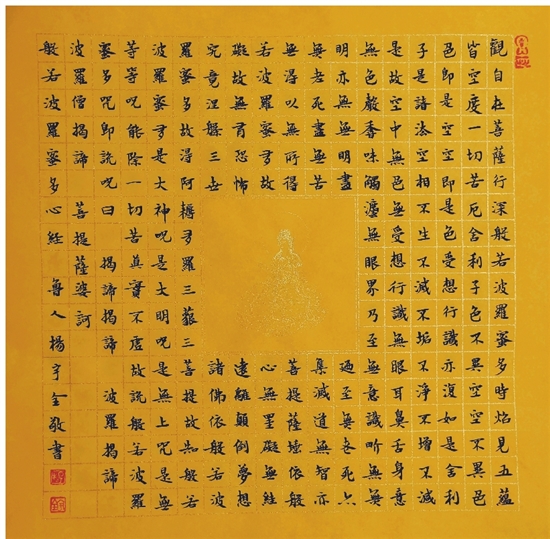 觀自在菩薩行深般若波羅蜜多時照見五蘊
皆空度一切苦厄舍利子色不異空空不異色
色即是空空即是色受想行識亦復如是舍利
子是諸法空相不生不滅不垢不淨不增不減
是故空中無色無受想行識無眼耳鼻舌身意
無色聲香味觸灋無眼界乃至無意識畍無無
明亦無無明盡 迺至無老死亦
無老死盡無苦 集滅道無智亦
無得以無所得 菩提薩埵依般
若波羅蜜多故 心無罣礙無罣
礙故無有恐怖 遠離顛倒夢想
究竟涅槃三世 諸佛依般若波
羅蜜多故得阿耨多羅三藐三菩提故知般若
波羅蜜多是大神呪是大明呪是無上呪是無
等等呪能除一切苦真實不虛故說般若波羅
蜜多呪即說呪曰 揭諦揭諦 波羅揭諦
波羅僧揭諦 菩提薩婆訶
般若波羅蜜多心經 魯人楊全敬書